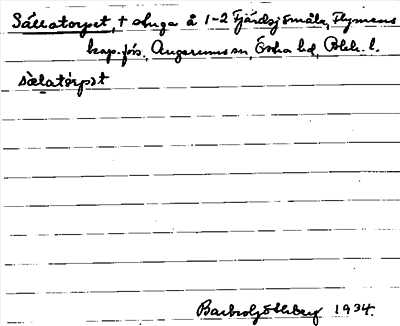 Sällatorpet, † stuga å 1-2 Fjärdsjömåla, Flymens
kap.förs., Augerums sn, Östra hd, Blek. l.
sælatòrpət
Barbro Göthberg 1934.